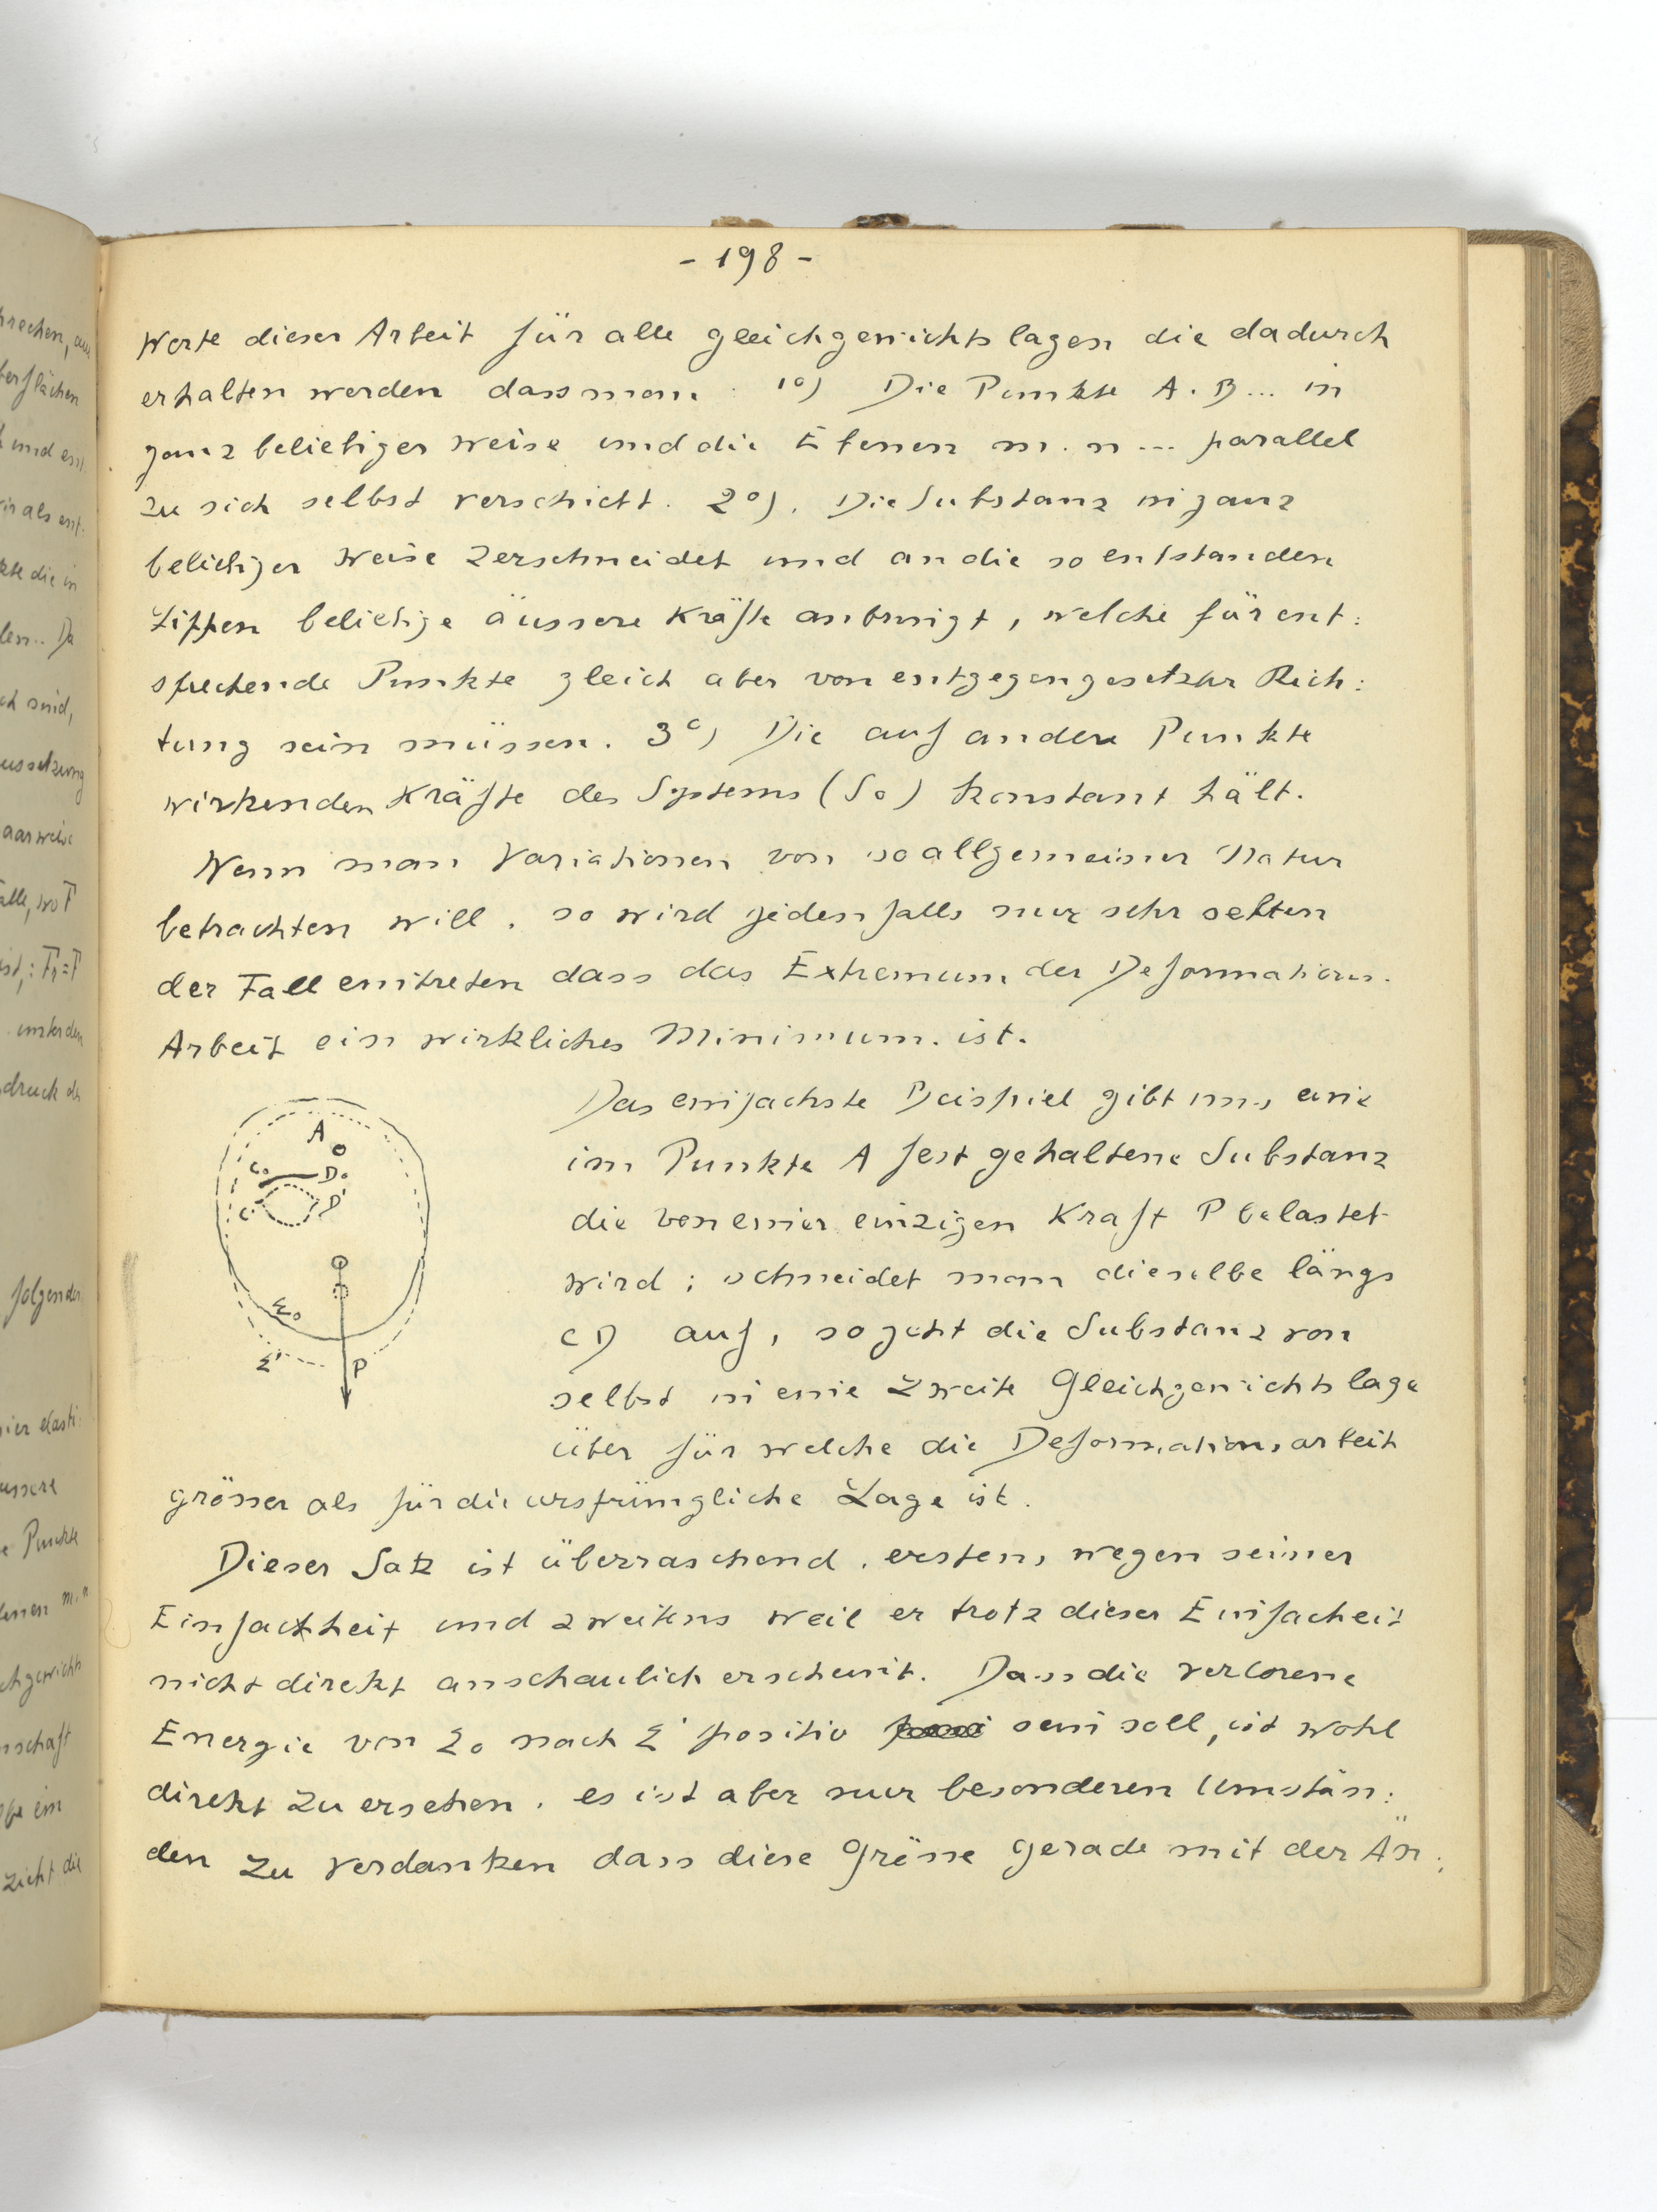 - 198 -
Werte dieser Arbeit für alle gleichgewichtslagen die dadurch
erhalten werden dass man : 1°) Die Punkte A. B... in
ganz beliebiger Weise und die Ebenen m. n... parallel
zu sich selbst verschiebt. 2°). Die Substanz in ganz
beliebiger Weise zerschneidet und an die so entstanden
Lippen beliebige äussere Kräfte anbringt, welche für ent:
sprechende Punkte gleich aber von entgegengesetzter Rich:
tung sein müssen. 3°) Die auf andere Punkte
wirkenden Kräfte des Systems (So) konstant hält.
Wenn man Variationen von so allgemeiner Natur
betrachten will, so wird jedenfalls nur sehr selten
der Fall eintreten dass das Extremum der Deformations.
Arbeit ein wirkliches Minimum. ist.
Das einfachste Beispiel gibt uns eine
im Punkte A fest gehaltene Substanz
die von einer einzigen Kraft P belastet
wird ; schneidet man dieselbe längs
CD auf, so geht die Substanz von
selbst in eine zweite Gleichgewichtslage
über für welche die Deformationsarbeit
grösser als für die ursprüngliche Lage ist.
A
Co
Do
C'
D'
Σo
Σ'
P
Dieser Satz ist überraschend, erstens wegen seiner
Einfachheit und zweitens weil er trotz dieser Einfacheit
nicht direkt anschaulich erscheint. Dass die verlorene
Energie von Σo nach Σ' positiv sein soll, ist wohl
direkt zu ersehen, es ist aber nur besonderen Umstän:
den zu verdanken dass diese Grösse gerade mit der Än: